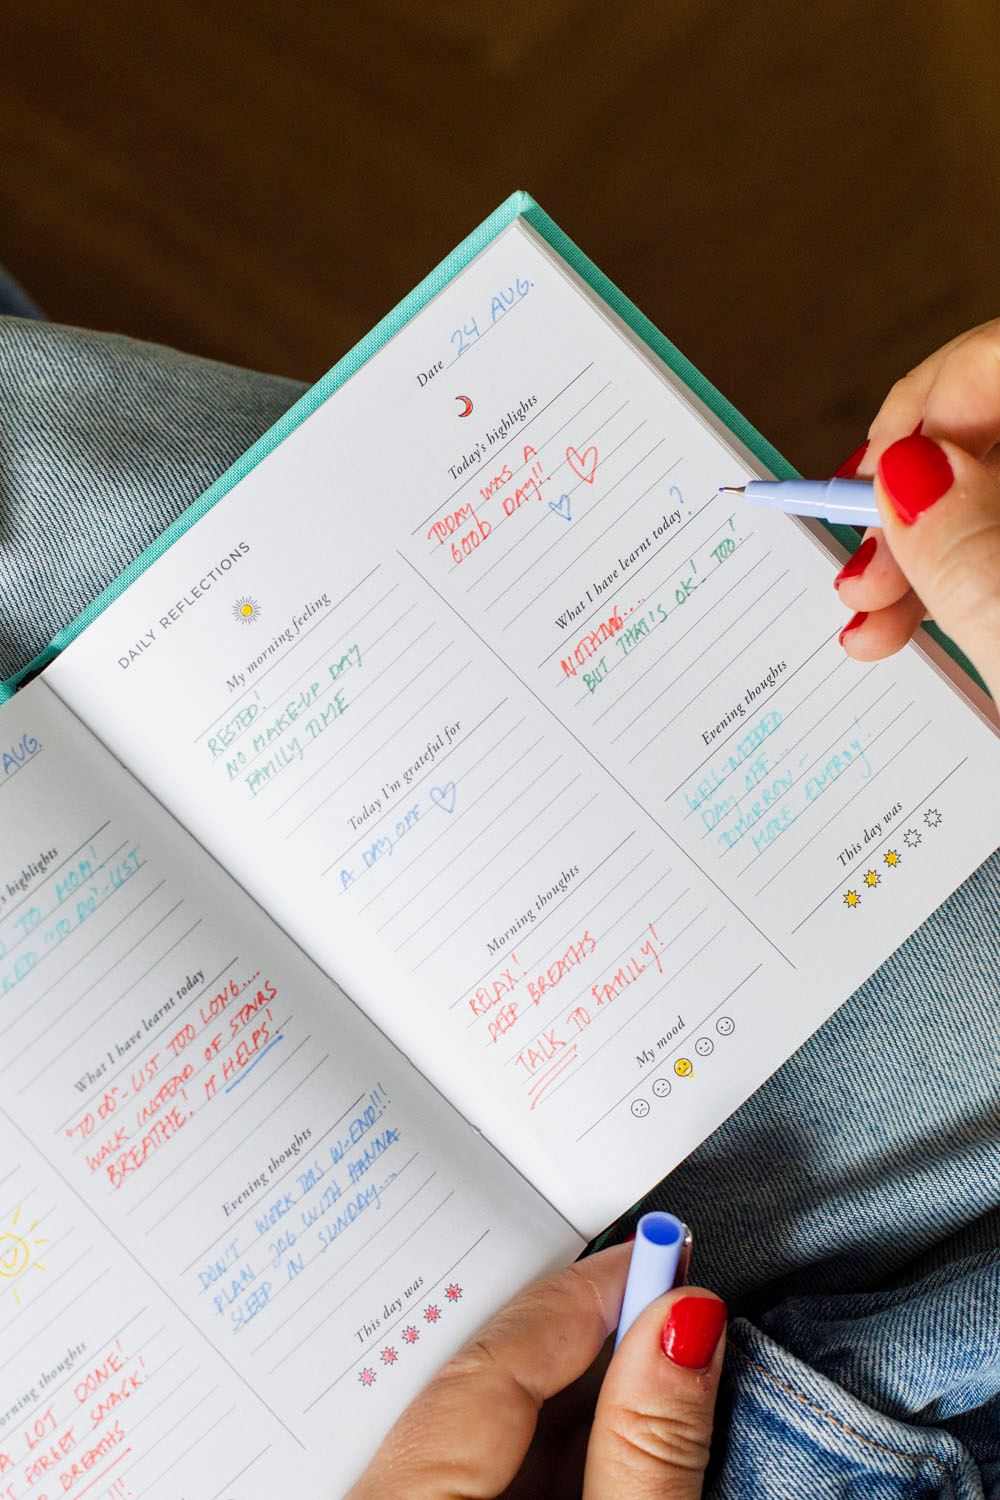 AUG.
's highlights
TO MOM!
"TO DO"-LIST
What I have learnt today
"TO DO"-LIST TOO LONG....
WALK INSTEAD OF STAIRS
BREATHE! IT HELPS!
Evening thoughts
DON'T WORK THIS W-END!!!
PLAN JOG WITH HANNA
SLEEP IN SUNDAY...
This day was
orning thoughts
A LOT DONE!
T FORGET SNACK!
P BREATHS
DAILY REFLECTIONS
My morning feeling
RESTED!
NO MAKE-UP DAY
FAMILY TIME
Today I'm grateful for
A DAY OFF
Morning thoughts
RELAX!
DEEP BREATHS
TALK TO FAMILY!
My mood
Date 24 AUG.
Today's highlights
TODAY WAS A
GOOD DAY!!
What I have learnt today?
NOTHING....
BUT THAT'S OK! TOO!
Evening thoughts
WELL-NEEDED
DAY OFF...
TOMORROW -
MORE ENERGY!
This day was